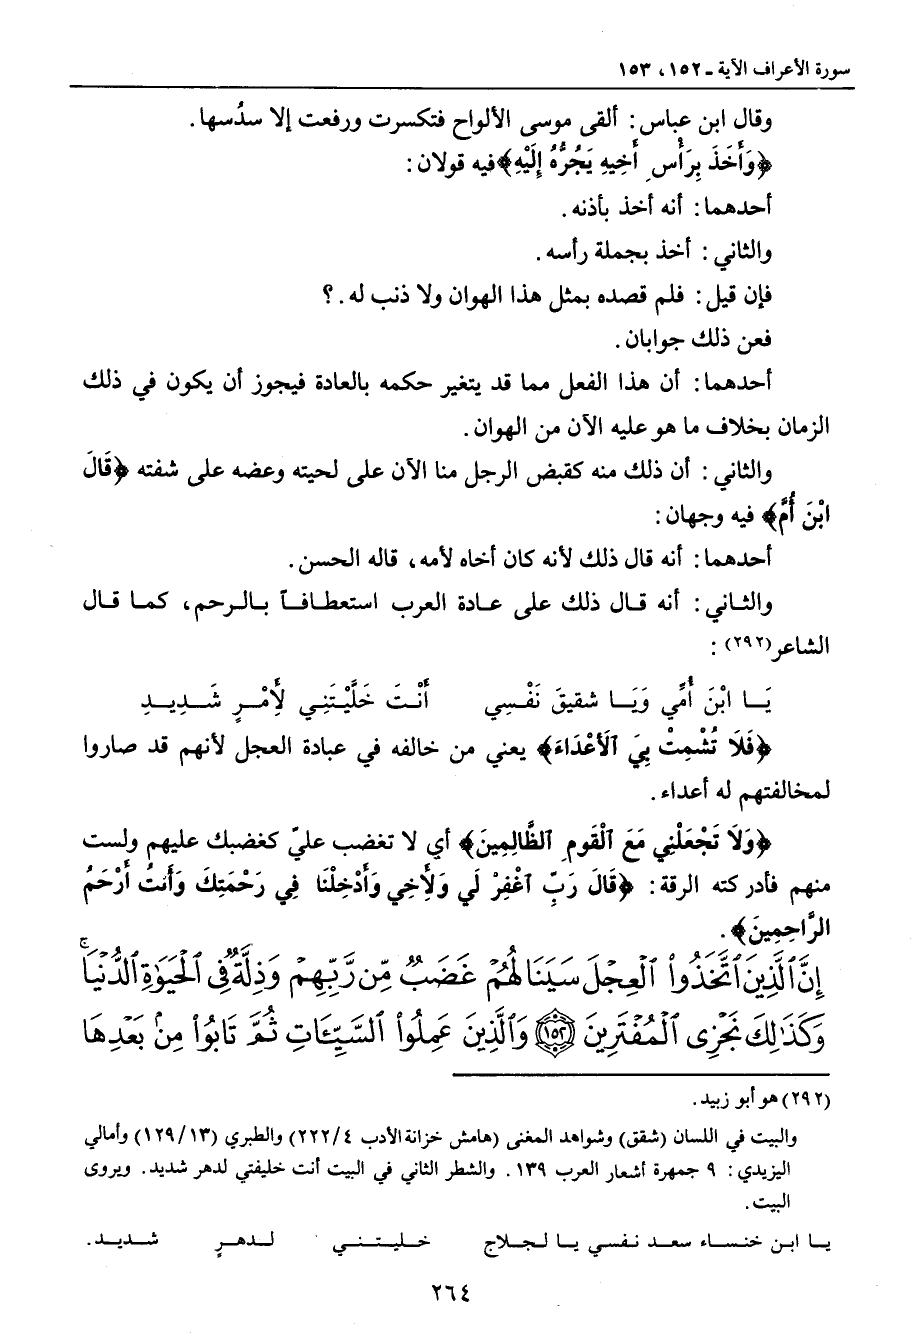 سورة الأعراف الآية ـ ١٥٢، ١٥٣
وقال ابن عباس: ألقى موسى الألواح فتكسرت ورفعت إلا سدُسها.
﴿وَأَخَذَ بِرَأْسِ أَخِيهِ يَجُرُّهُ إِلَيْهِ﴾ فيه قولان:
أحدهما: أنه أخذ بأذنه.
والثاني: أخذ بجملة رأسه.
فإن قيل: فلم قصده بمثل هذا الهوان ولا ذنب له.؟
فعن ذلك جوابان.
أحدهما: أن هذا الفعل مما قد يتغير حكمه بالعادة فيجوز أن يكون في ذلك
الزمان بخلاف ما هو عليه الآن من الهوان.
والثاني: أن ذلك منه كقبض الرجل منا الآن على لحيته وعضه على شفته ﴿قَالَ
ابْنَ أُمَّ﴾ فيه وجهان:
أحدهما: أنه قال ذلك لأنه كان أخاه لأمه، قاله الحسن.
والثاني: أنه قال ذلك على عادة العرب استعطافاً بالرحم، كما قال
الشاعر(٢٩٢):
يَا ابْنَ أُمِّي وَيَا شقيقَ نَفْسِي أَنْتَ خَلَّيْتَنِي لِأَمْرٍ شَدِيدِ
﴿فَلَا تُشْمِتْ بِيَ ٱلأَعْدَاءَ﴾ يعني من خالفه في عبادة العجل لأنهم قد صاروا
لمخالفتهم له أعداء.
﴿وَلَا تَجْعَلْنِي مَعَ ٱلْقَومِ ٱلظَّالِمِينَ﴾ أي لا تغضب عليّ كغضبك عليهم ولست
منهم فأدركته الرقة: ﴿قَالَ رَبِّ ٱغْفِرْ لَي وَلِأَخِي وَأَدْخِلْنَا فِي رَحْمَتِكَ وَأَنتَُ أَرْحَمُ
الرَّاحِمِينَ﴾.
إِنَّ ٱلَّذِينَ ٱتَّخَذُوا۟ ٱلْعِجْلَ سَيَنَالُهُمْ غَضَبٌ مِّن رَّبِّهِمْ وَذِلَّةٌ فِى ٱلْحَيَوٰةِ ٱلدُّنْيَا ۚ
وَكَذَٰلِكَ نَجْزِى ٱلْمُفْتَرِينَ ١٥٢ وَٱلَّذِينَ عَمِلُوا۟ ٱلسَّيِّـَٔاتِ ثُمَّ تَابُوا۟ مِنۢ بَعْدِهَا
(٢٩٢) هو أبو زبيد.
والبيت في اللسان (شقق) وشواهد المغنى (هامش خزانة الأدب ٢٢٢/٤) والطبري (١٢٩/١٣) وأمالي
اليزيدي: ٩ جمهرة أشعار العرب ١٣٩. والشطر الثاني في البيت أنت خليفتي لدهر شديد. ويروى
البيت.
يا ابن خنساء سعد نفسي يا لجلاج خليتني لدهرٍ شديد.
٢٦٤